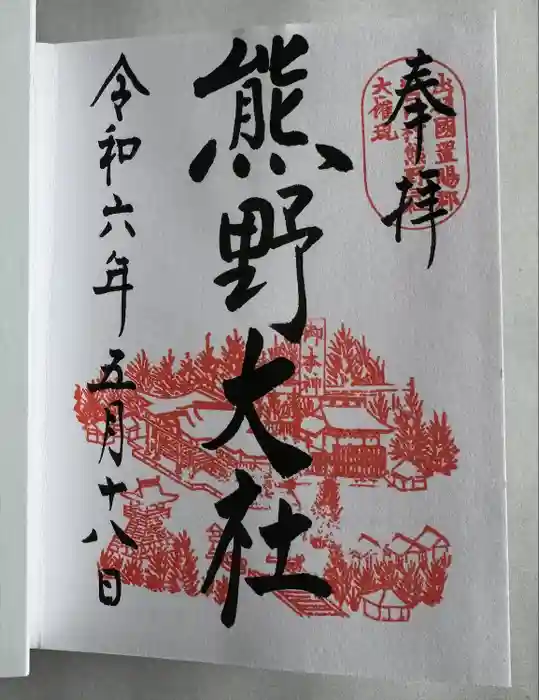 奉拝
熊野大社
令和六年五月十八日
國置賜郡
熊野
大権現